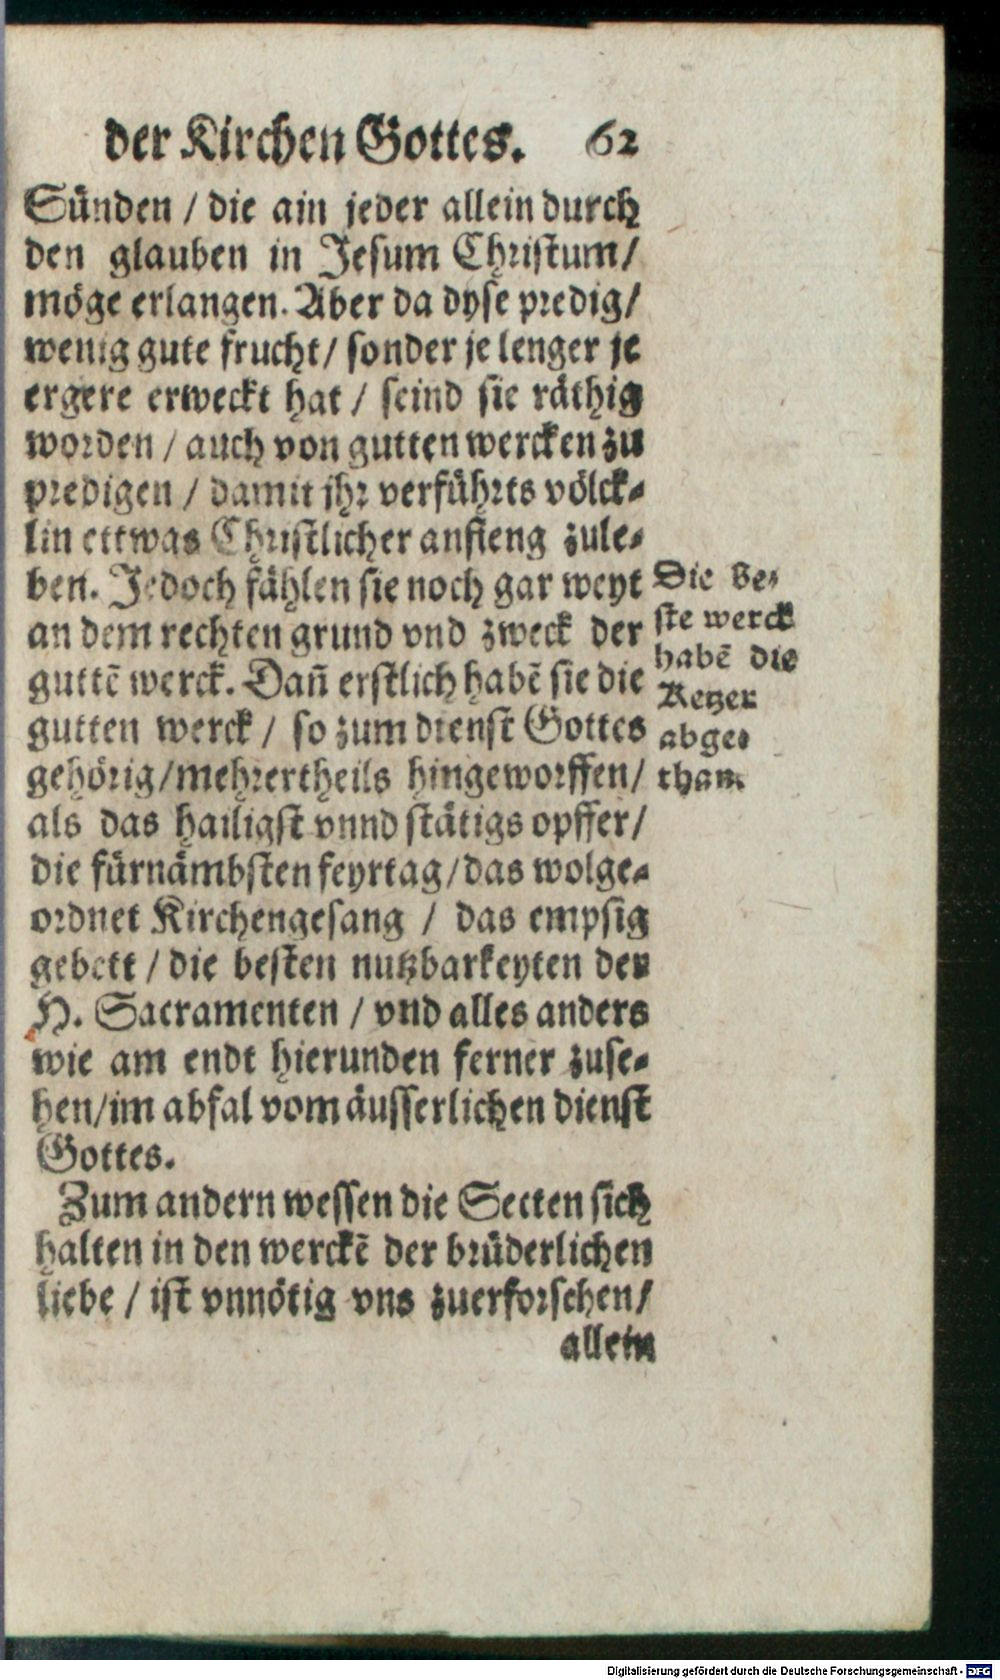 der Kirchen Gottes. 62
Sünden / die ain jeder allein durch
den glauben in Jesum Christum/
möge erlangen. Aber da dyse predig/
wenig gute frucht/ sonder je lenger je
ergere erweckt hat / seind sie räthig
worden / auch von gutten wercken zu
predigen / damit jhr verführts völck-
lin ettwas Christlicher anfieng zule-
ben. Jedoch fählen sie noch gar weyt
an dem rechten grund vnd zweck der
guttē werck. Dañ erstlich habē sie die
gutten werck / so zum dienst Gottes
gehörig/mehrertheils hingeworffen/
als das hailigst vnnd stätigs opffer/
die fürnämbsten feyrtag/das wolge-
ordnet Kirchengesang / das empsig
gebett / die besten nutzbarkeyten der
H. Sacramenten / vnd alles anders
wie am endt hierunden ferner zuse-
hen/im abfal vom äusserlichen dienst
Gottes.
Zum andern wessen die Secten sich
halten in den werckē der brüderlichen
liebe / ist vnnötig vns zuerforschen/
allein
Die be-
ste werck
habē die
Ketzer
abge-
than.
Digitalisierung gefördert durch die Deutsche Forschungsgemeinschaft - DFG